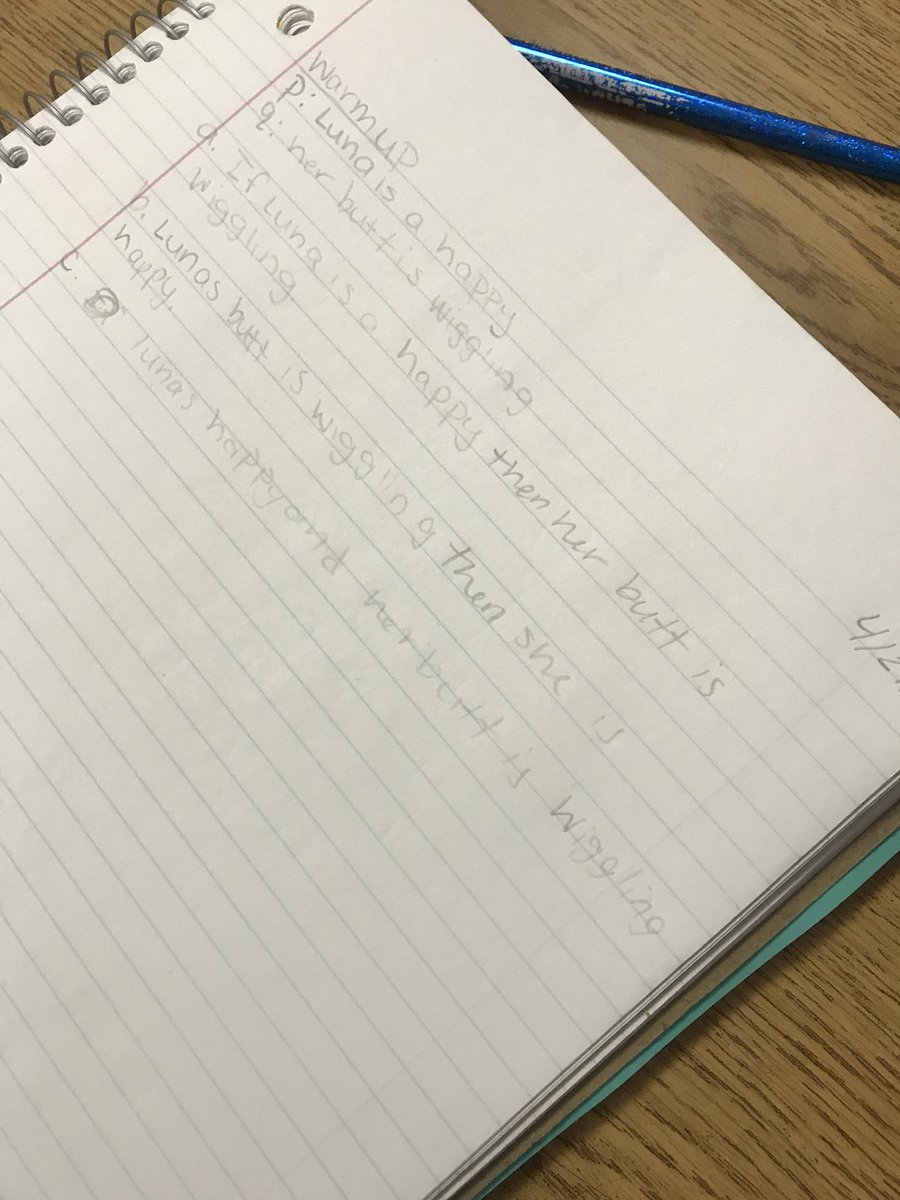 Warmup
p: Luna is a happy
q: her butt is wiggling
a. If Luna is a happy then her butt is
wiggling
b. Lunas butt is wiggling then she is
happy.
c. lunas happy and her butt is wiggling
4/2